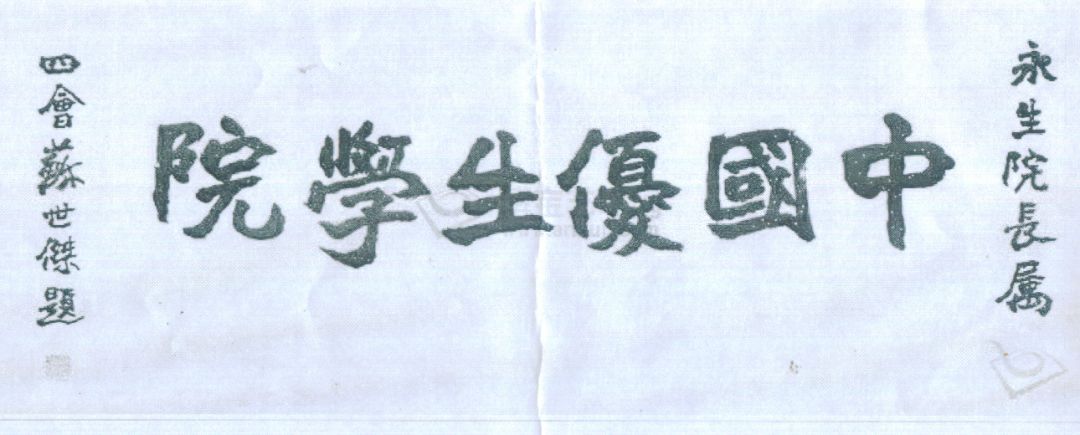 永生院長属
中國優生學院
四會蘇世傑題